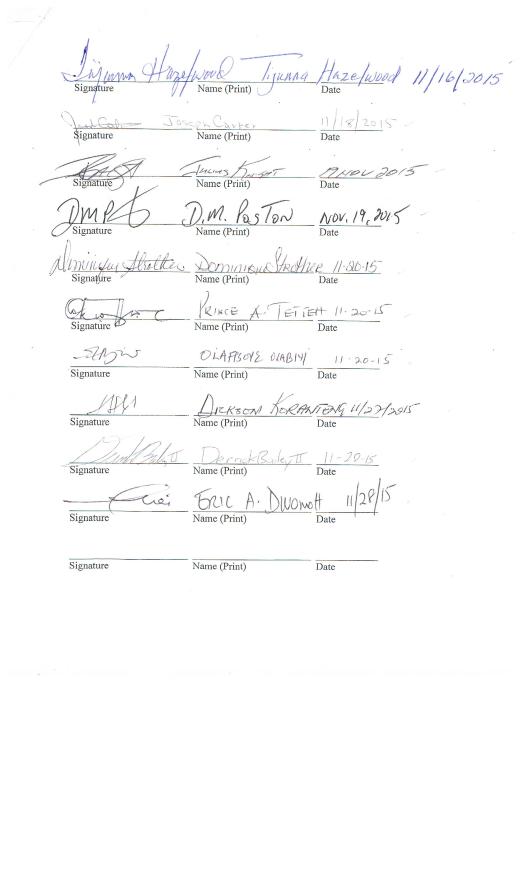 Tijuana Hazelwood Tijuana Hazelwood 11/16/2015
Signature Name (Print) Date
Joseph Carter 11/18/2015
Signature Name (Print) Date
Julius Knight 19 NOV 2015
Signature Name (Print) Date
DMP D.M. POSTON NOV. 19, 2015
Signature Name (Print) Date
Dominique Strother Dominique Strother 11-20-15
Signature Name (Print) Date
PRINCE A. TETTEH 11-20-15
Signature Name (Print) Date
OLABIYI 11-20-15
Signature Name (Print) Date
DICKSON KORANTENG 11/22/2015
Signature Name (Print) Date
Derrick Bailey II 11-20-15
Signature Name (Print) Date
ERIC A. 11/28/15
Signature Name (Print) Date
Signature Name (Print) Date